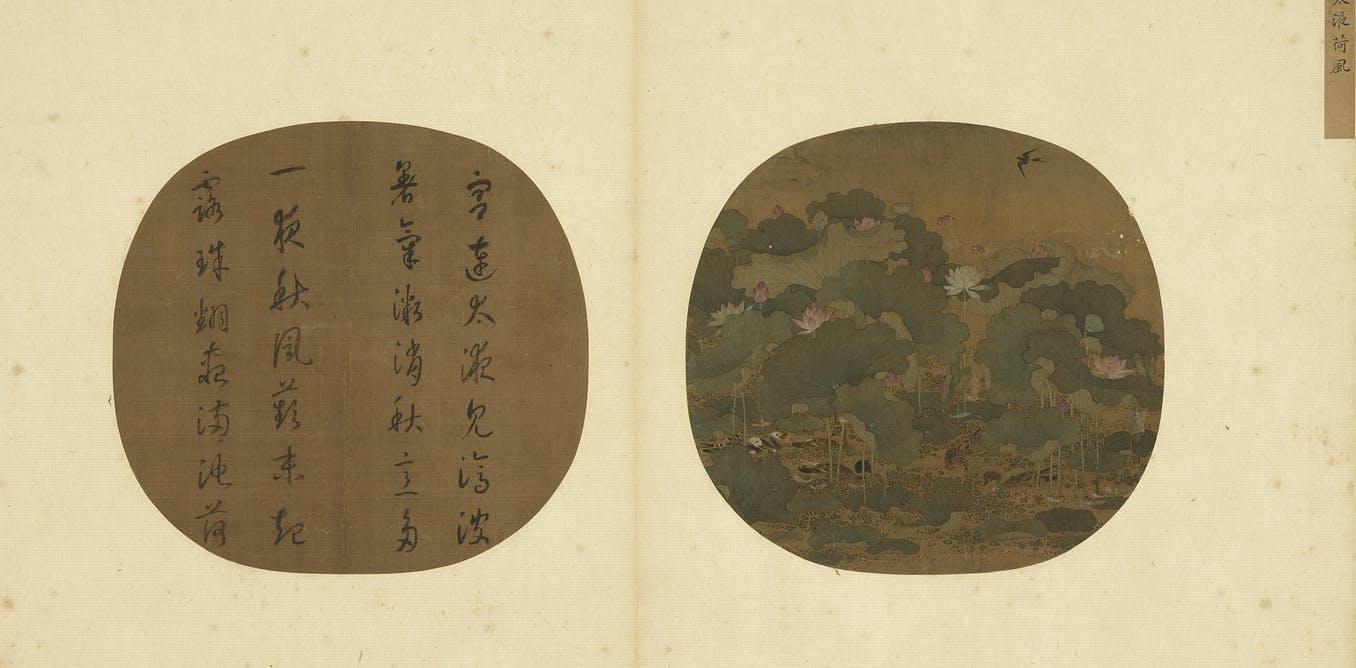 太液荷風
宮連太液見滄波
暑氣漸消秋意多
一夜秋風蘋末起
露珠翻盡滿池荷